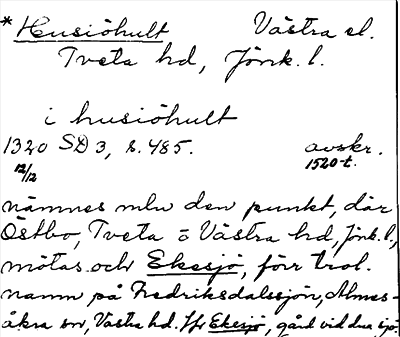 * Husiöhult Västra el.
Tveta hd, Jönk. l.
i husiöhult
1320 SD 3, s. 485. avskr.
12/12 1520-t.
nämnes mlu den punkt, där
Östbo, Tveta o Västra hd, Jönk. l.,
mötas och Ekesjö, förr trol.
namn på Fredriksdalssjön, Almes-
åkra sn, Västra hd. Jfr Ekesjö, gård vid dna sjö.